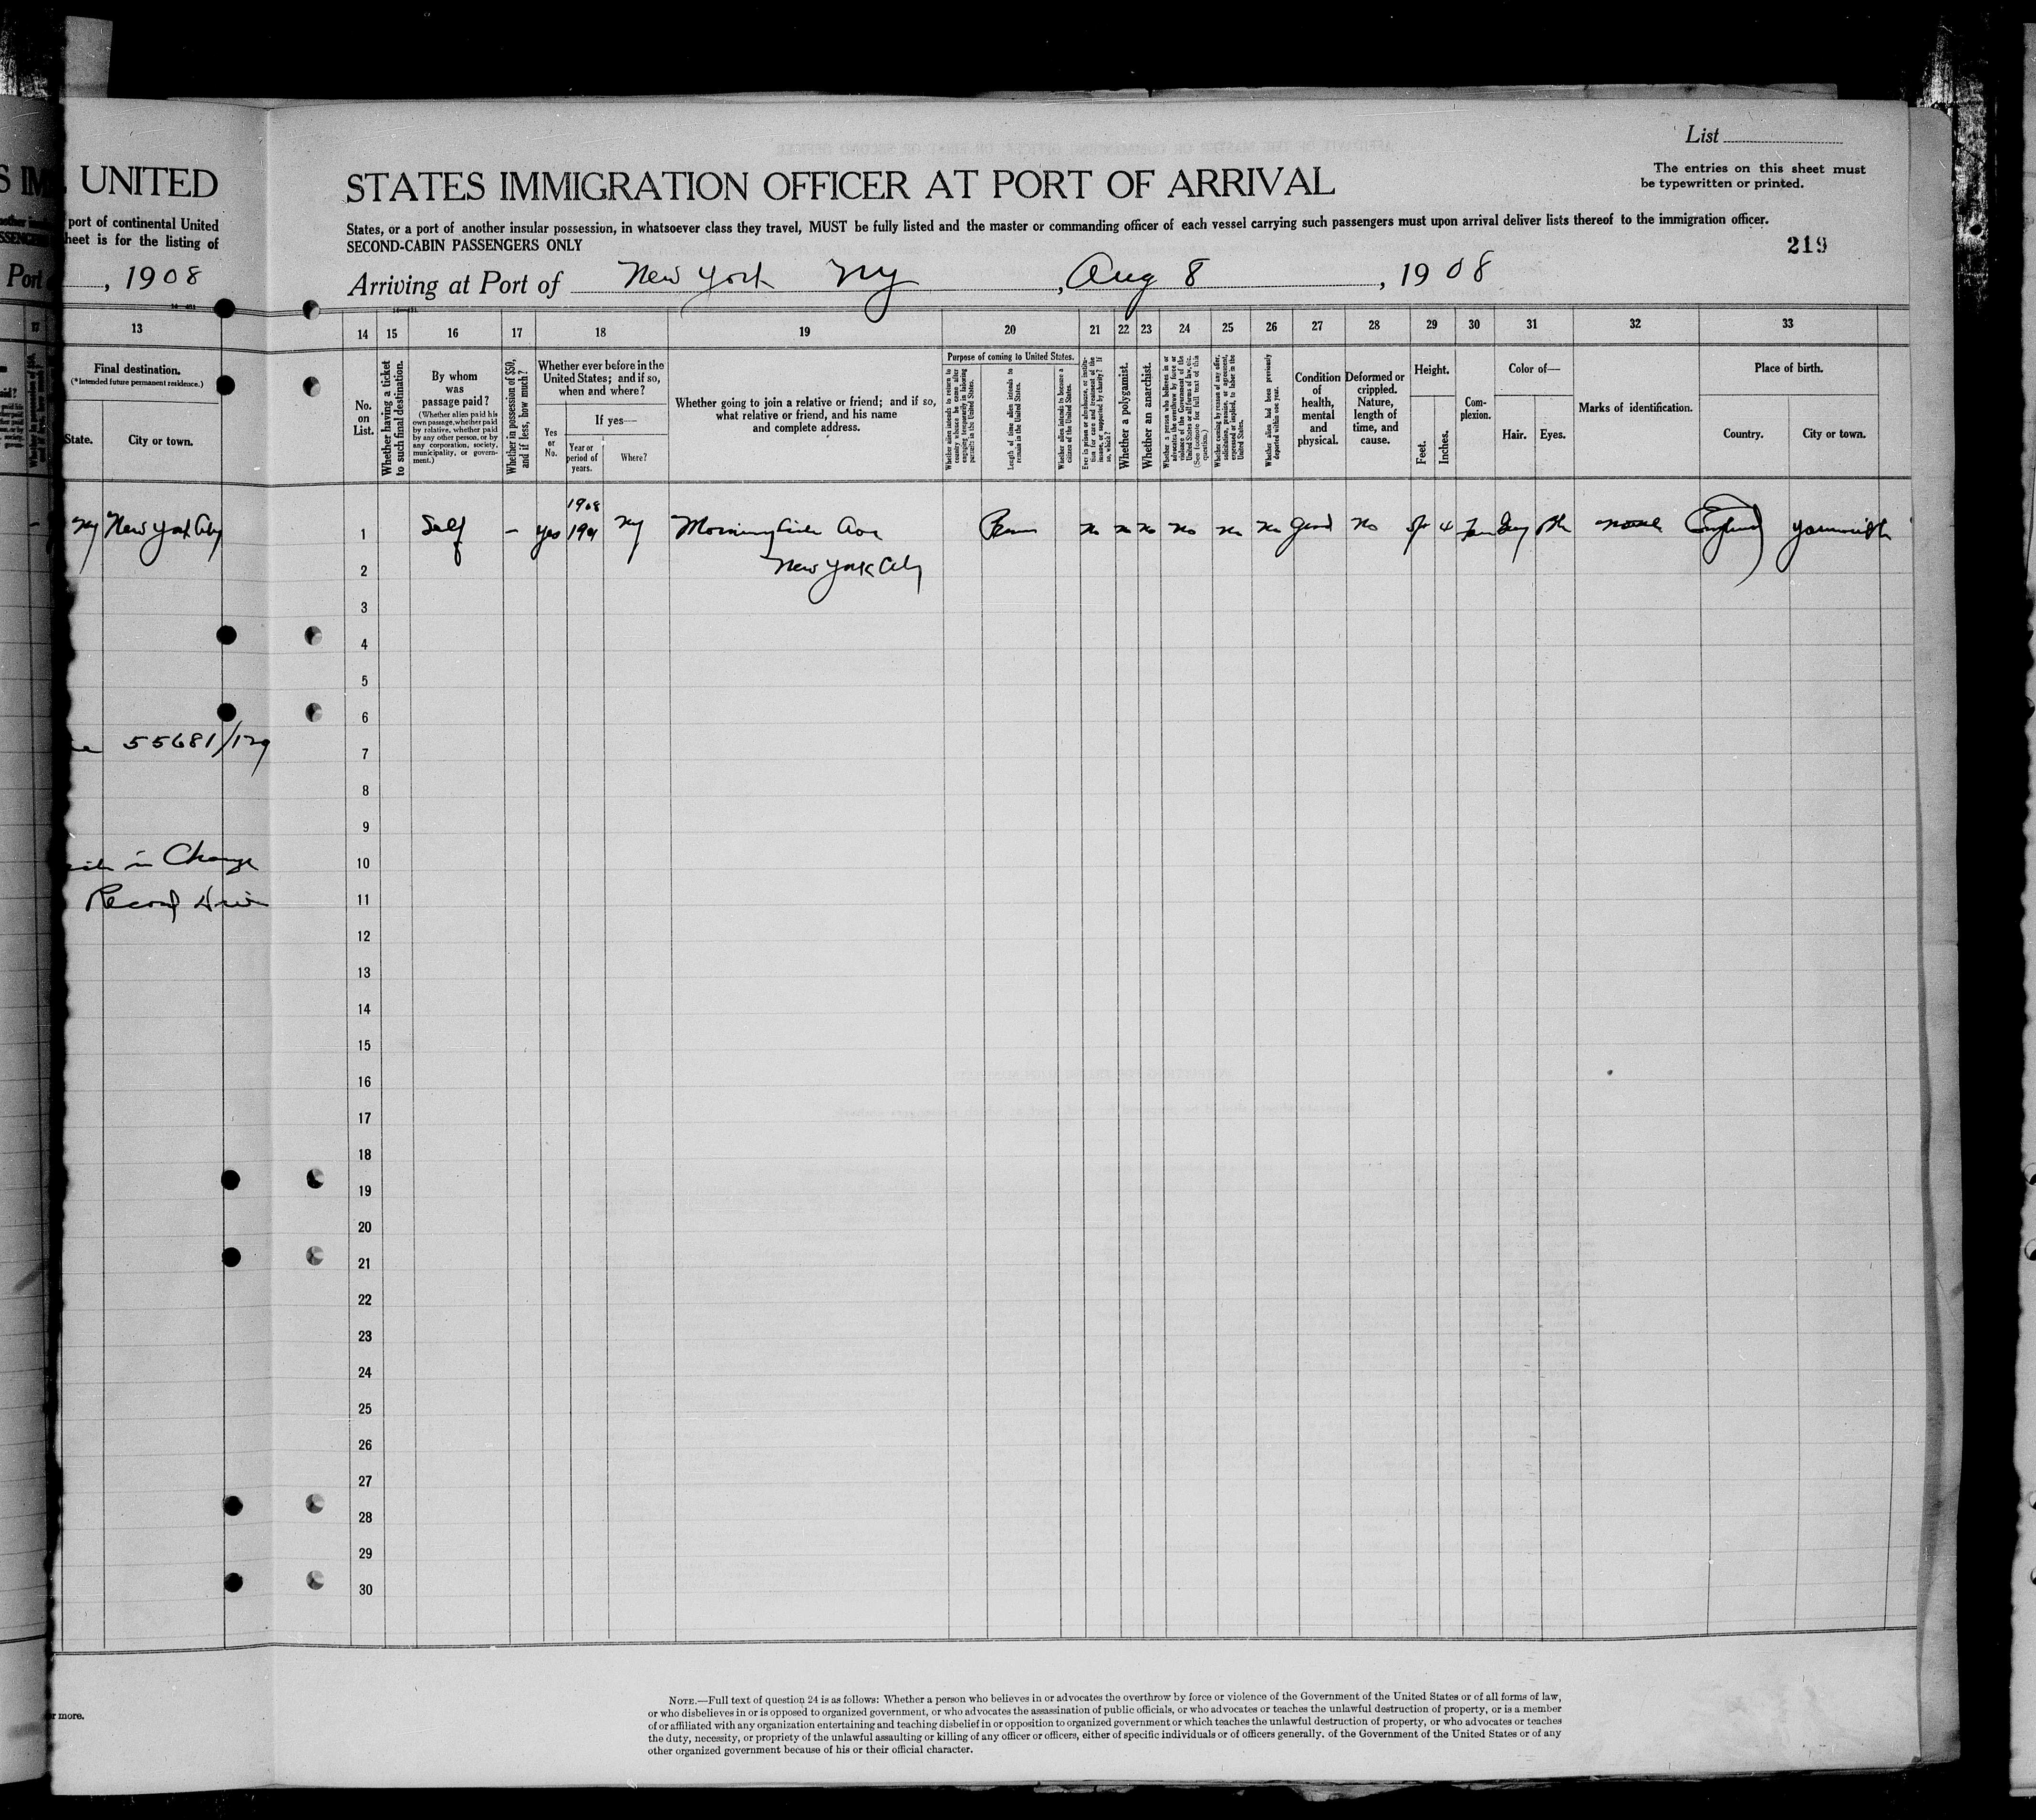 List
The entries on this sheet must
be typewritten or printed.
S IM
UNITED
STATES IMMIGRATION OFFICER AT PORT OF ARRIVAL
port of continental United
heet is for the listing of
States, or a port of another insular possession, in whatsoever class they travel, MUST be fully listed and the master or commanding officer of each vessel carrying such passengers must upon arrival deliver lists thereof to the immigration officer.
SECOND-CABIN PASSENGERS ONLY
219
Port
, 1908
Arriving at Port of New York NY , Aug 8 , 1908
13 14 15 16 17 18 19 20 21 22 23 24 25 26 27 28 29 30 31 32 33
Final destination.
(*Intended future permanent residence.)
State.
City or town.
No.
on
List.
Whether having a ticket
to such final destination.
By whom
was
passage paid?
(Whether alien paid his
own passage, whether paid
by relative, whether paid
by any other person, or by
any corporation, society,
municipality, or govern-
ment.)
Whether in possession of $50,
and if less, how much?
Whether ever before in the
United States; and if so,
when and where?
Yes
or
No.
If yes—
Year or
period of
years.
Where?
Whether going to join a relative or friend; and if so,
what relative or friend, and his name
and complete address.
Purpose of coming to United States.
Whether alien intends to return to
country whence he came after
engaging temporarily in laboring
pursuits in the United States.
Length of time alien intends to
remain in the United States.
Whether alien intends to become a
citizen of the United States.
Ever in prison or almshouse, or institu-
tion for care and treatment of the
insane, or supported by charity? If
so, which?
Whether a polygamist.
Whether an anarchist.
Whether a person who believes in or
advocates the overthrow by force or
violence of the Government of the
United States or all forms of law, etc.
(See footnote for full text of this
question.)
Whether coming by reason of any offer,
solicitation, promise, or agreement,
expressed or implied, to labor in the
United States.
Whether alien had been previously
deported within one year.
Condition
of
health,
mental
and
physical.
Deformed or
crippled.
Nature,
length of
time, and
cause.
Height.
Feet.
Inches.
Com-
plexion.
Color of—
Hair.
Eyes.
Marks of identification.
Place of birth.
Country.
City or town.
1908
NY New York City 1 Self - Yes NY Morningside Ave no no no no no no good no 4 England
2 New York City
3
4
5
6
55681/129
7
8
9
10
in Charge
11
Record
12
13
14
15
16
17
18
19
20
21
22
23
24
25
26
27
28
29
30
r more.
NOTE.—Full text of question 24 is as follows: Whether a person who believes in or advocates the overthrow by force or violence of the Government of the United States or of all forms of law,
or who disbelieves in or is opposed to organized government, or who advocates the assassination of public officials, or who advocates or teaches the unlawful destruction of property, or is a member
of or affiliated with any organization entertaining and teaching disbelief in or opposition to organized government or which teaches the unlawful destruction of property, or who advocates or teaches
the duty, necessity, or propriety of the unlawful assaulting or killing of any officer or officers, either of specific individuals or of officers generally. of the Government of the United States or of any
other organized government because of his or their official character.